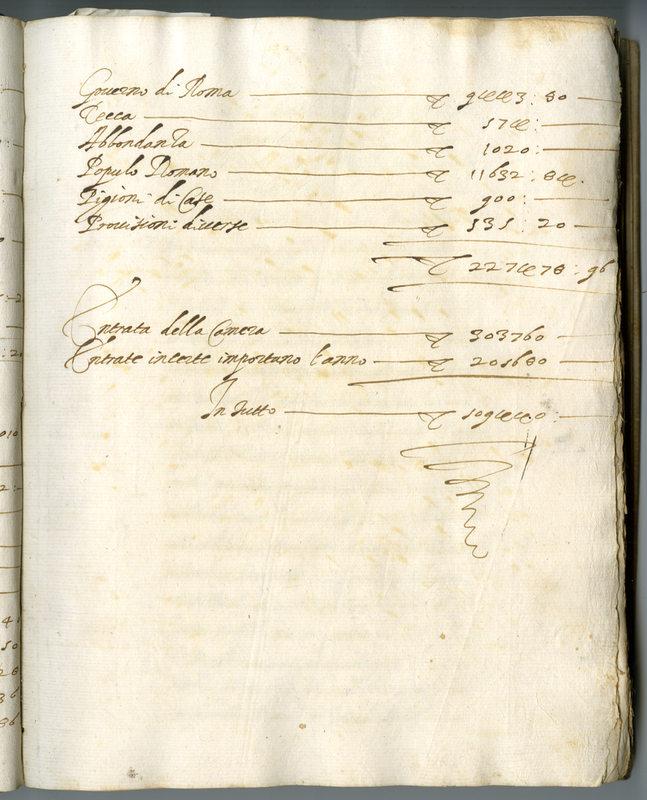 Governo di Roma ▽ 9443 : 80
Zecca ▽ 574 :
Abbondanza ▽ 1020 :
Populo Romano ▽ 11632 : 84.
Pigioni di Case ▽ 900 :
Provisioni diverse ▽ 535 : 20
▽ 227478 : 96
Entrata della Camera ▽ 303760
Entrate incerte importano l'anno ▽ 205680
In tutto ▽ 509440 :